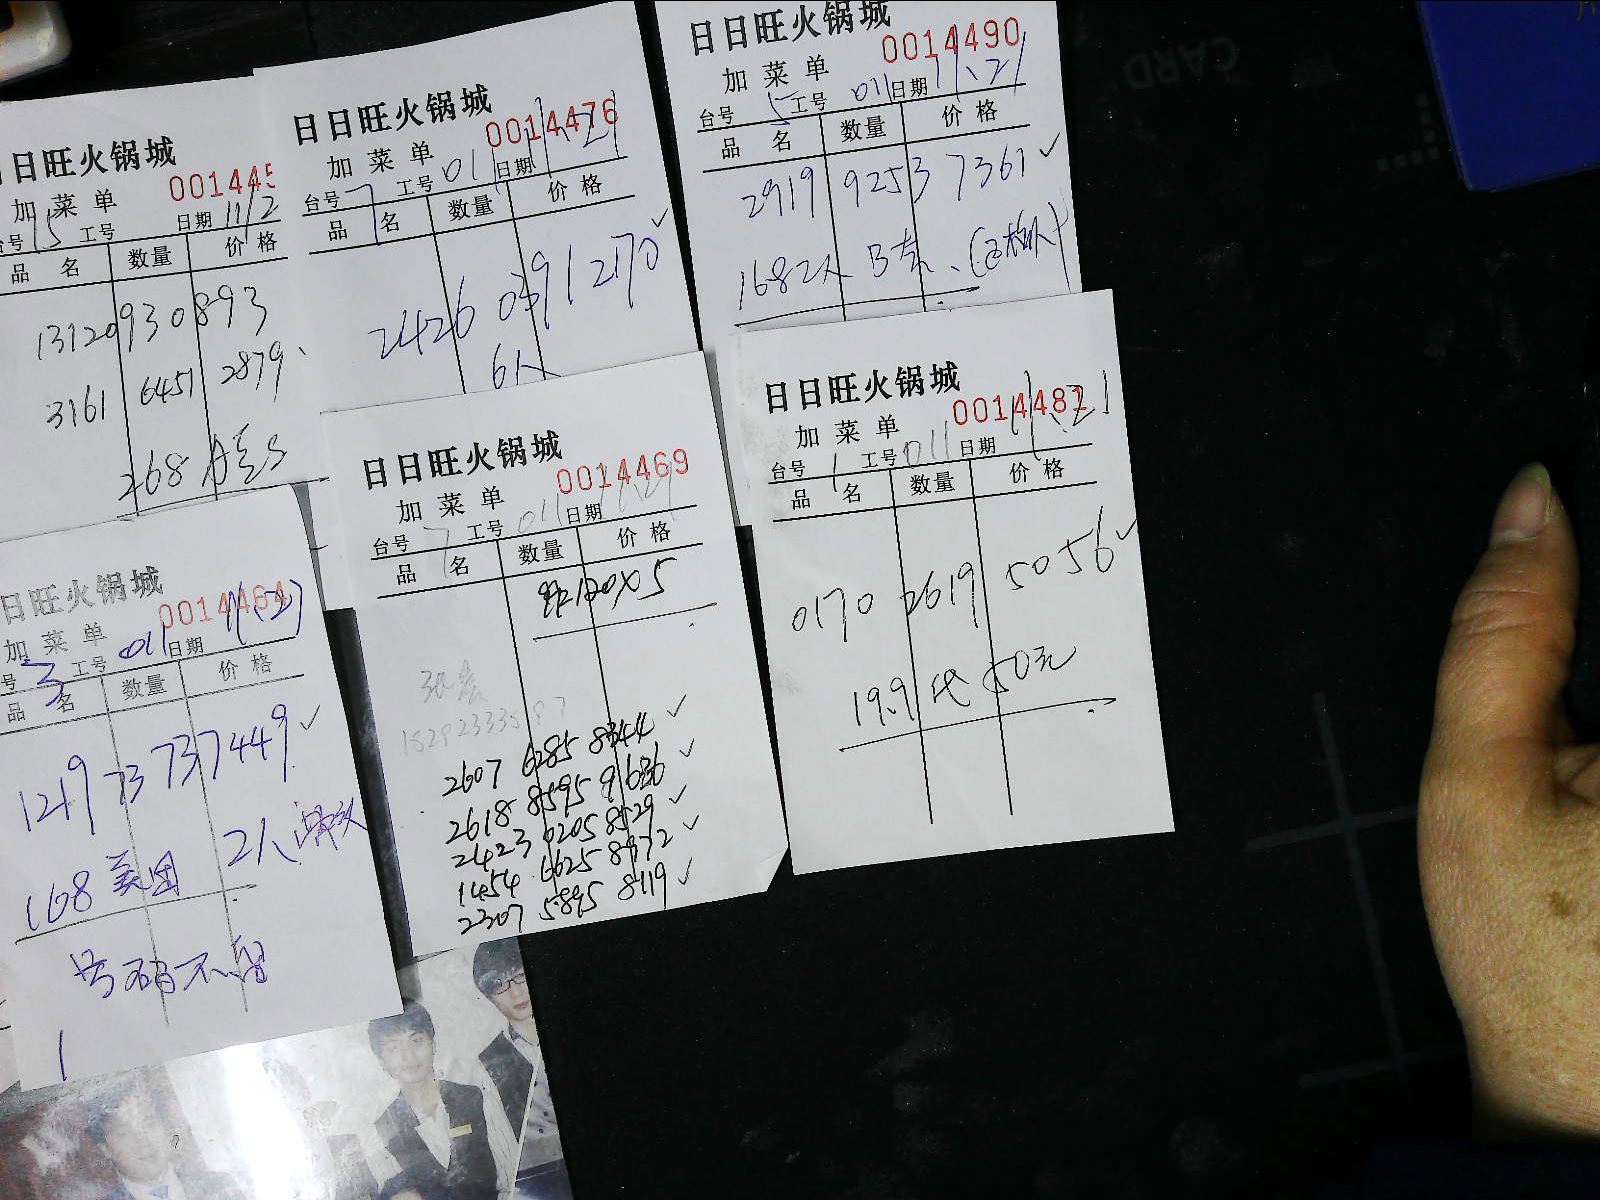 日日旺火锅城
001445
加菜单
台号 15 工号 日期 11/2
品名 数量 价格
13120930893
3161 6451 2879
268
日日旺火锅城
0014476
加菜单
台号 7 工号 011 日期 11.21
品名 数量 价格
2426 0391 2170 ✓
6人
日日旺火锅城
0014490
加菜单
台号 5 工号 011 日期 11.21
品名 数量 价格
2919 9253 7361 ✓
1682人 B套
日旺火锅城
0014464
加菜单
号 3 工号 011 日期 11.21
品名 数量 价格
1219 73 73 7449 ✓
168 美团 2人
号码不留
日日旺火锅城
0014469
加菜单
台号 7 工号 011 日期 11.21
品名 数量 价格
120X5
2607 6285 8344 ✓
2618 8595 9636 ✓
2423 6205 8529 ✓
1454 6625 8972 ✓
2307 5895 8119 ✓
日日旺火锅城
0014487
加菜单
台号 1 工号 011 日期 11.21
品名 数量 价格
0170 2619 5056 ✓
19.9代50元
CARD